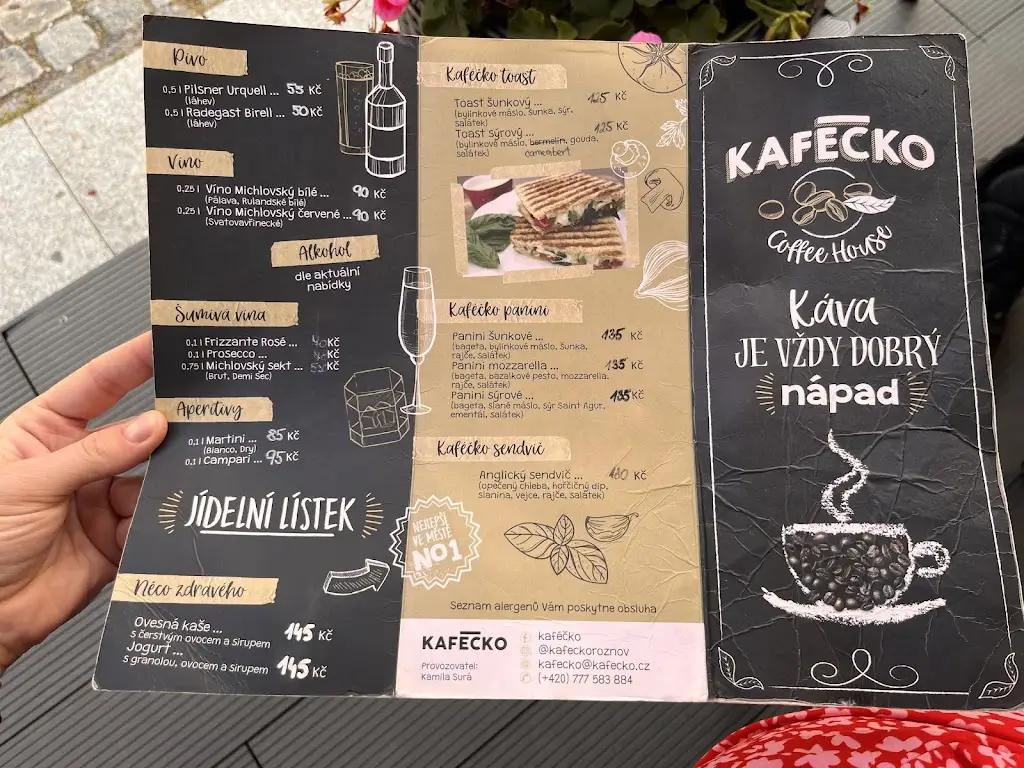 Pivo
0,5 l Pilsner Urquell ... 55 Kč
(láhev)
0,5 l Radegast Birell ... 50 Kč
(láhev)
Víno
0,25 l Víno Michlovský bílé ... 90 Kč
(Pálava, Rulandské bílé)
0,25 l Víno Michlovský červené ... 90 Kč
(Svatovavřinecké)
Alkohol
dle aktuální
nabídky
Šumivá vína
0,1 l Frizzante Rosé ... Kč
0,1 l Prosecco ... Kč
0,75 l Michlovský sekt ... Kč
(Brut, Demi Sec)
Aperitivy
0,1 l Martini ... 85 Kč
(Bianco, Dry)
0,1 l Campari ... 95 Kč
JÍDELNÍ LÍSTEK
Něco zdravého
Ovesná kaše ... 145 Kč
s čerstvým ovocem a sirupem
Jogurt ...
s granolou, ovocem a sirupem 145 Kč
Kaféčko toast
Toast šunkový ... 125 Kč
(bylinkové máslo, šunka, sýr,
salátek)
Toast sýrový ... 125 Kč
(bylinkové máslo, hermelín, gouda,
salátek) camembert
Kaféčko panini
Panini šunkové ... 135 Kč
(bageta, bylinkové máslo, šunka,
rajče, salátek)
Panini mozzarella ... 135 Kč
(bageta, bazalkové pesto, mozzarella,
rajče, salátek)
Panini sýrové ... 135 Kč
(bageta, slané máslo, sýr Saint Agur,
ementál, salátek)
Kaféčko sendvič
Anglický sendvič ... Kč
(opečený chleba, hořčičný dip,
slanina, vejce, rajče, salátek)
NEJLEPŠÍ
VE MĚSTĚ
NO1
Seznam alergenů Vám poskytne obsluha
KAFÉČKO
Provozovatel:
Kamila Surá
kaféčko
@kafeckoroznov
kafecko@kafecko.cz
(+420) 777 583 884
KAFÉČKO
Coffee House
Káva
JE VŽDY DOBRÝ
nápad